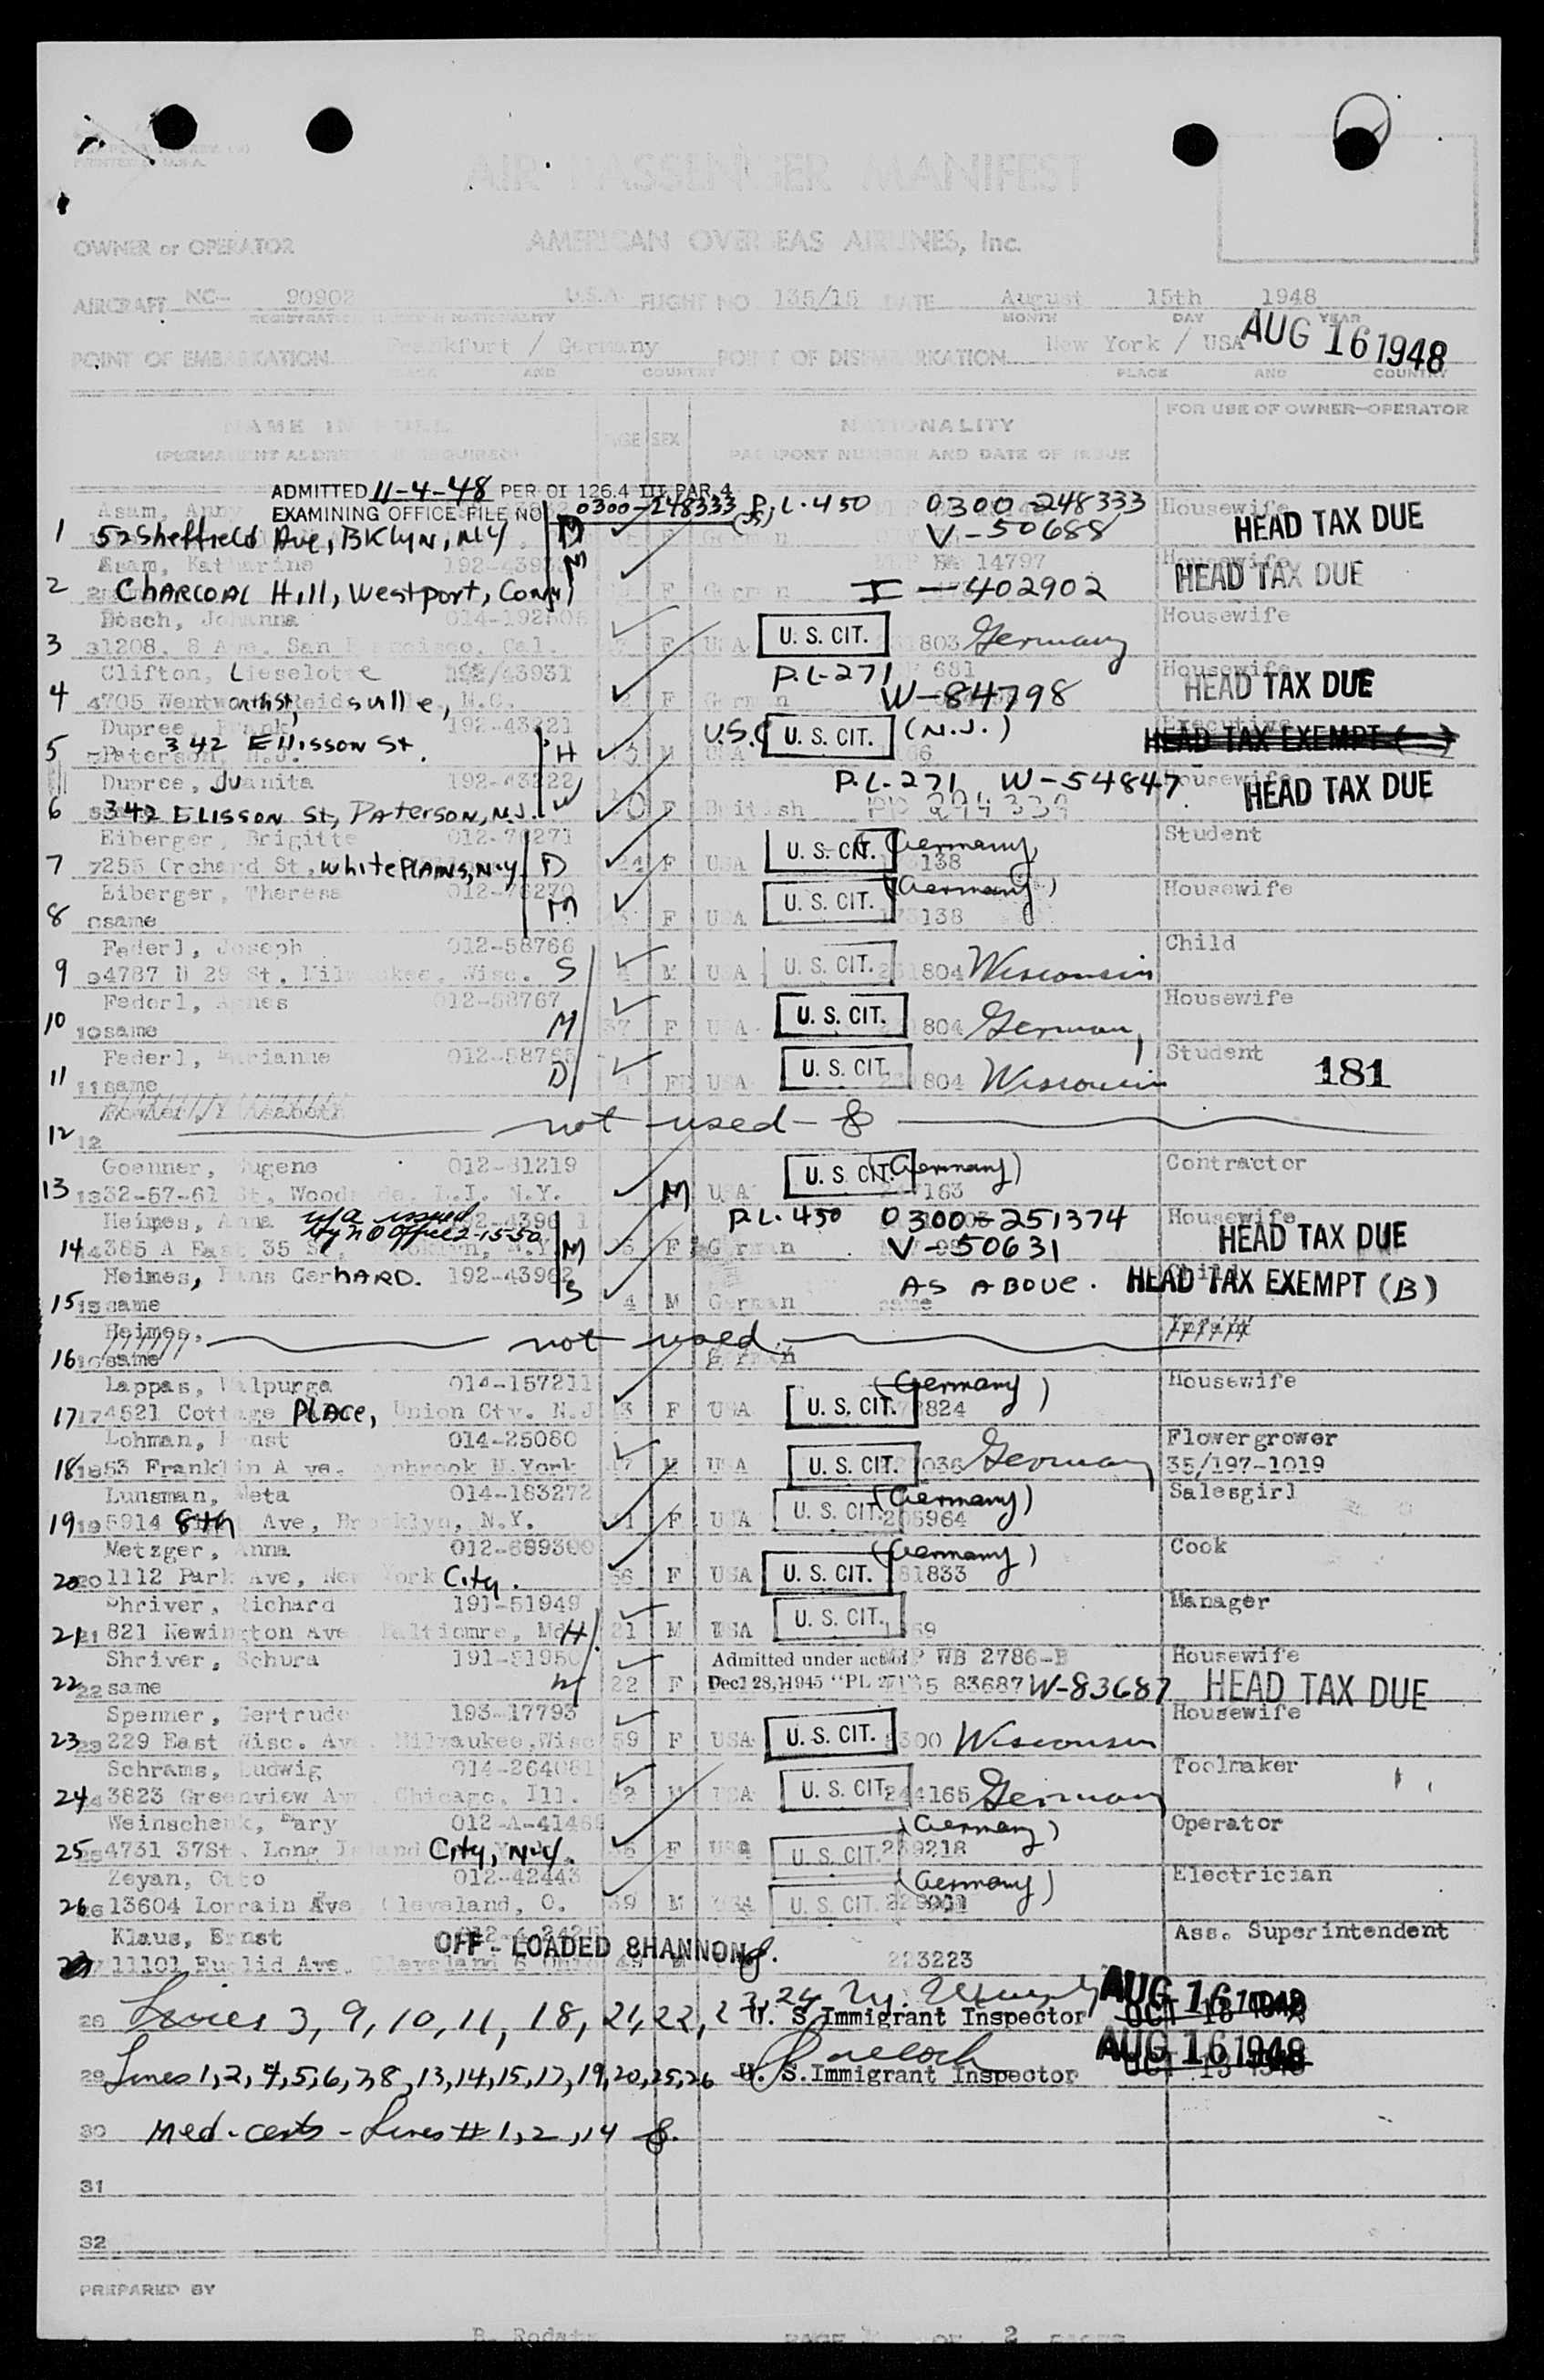 PRINTED IN U.S.A.
AIR PASSENGER MANIFEST
OWNER or OPERATOR AMERICAN OVERSEAS AIRLINES, Inc.
AIRCRAFT NC- 90902 U.S.A. FLIGHT NO 135/15 DATE August 15th 1948
REGISTRATION NATIONALITY MONTH DAY YEAR
AUG 16 1948
POINT OF EMBARKATION Frankfurt / Germany POINT OF DISEMBARKATION New York / USA
PLACE AND COUNTRY PLACE AND COUNTRY
NAME IN FULL AGE SEX NATIONALITY FOR USE OF OWNER-OPERATOR
(PERMANENT ADDRESS IF REQUIRED) PASSPORT NUMBER AND DATE OF ISSUE
ADMITTED 11-4-48 PER OI 126.4 III PAR. 4
EXAMINING OFFICE FILE NO 0300-248333 P.L.450 0300-248333
Asam, Anny Housewife
1 52 Sheffield Ave, BKlyN, NY M F German V-50688 HEAD TAX DUE
Asam, Katharine 14797 Housewife
2 CHARCOAL Hill, Westport, Conn F German I-402902 HEAD TAX DUE
Bosch, Johanna 014-192505 Housewife
3 31208. 8 Ave. San Francisco, Cal. F USA U. S. CIT. 803 Germany
Clifton, Lieselotte /43931 P.L-271 681 Housewife
4 4705 Wentworth St, Reidsville, N.C. F German W-84798 HEAD TAX DUE
Dupree, Frank 192-43221 U.S.C U. S. CIT. (N.J.) Executive
5 342 Ellisson St. Paterson, N.J. H M USA HEAD TAX EXEMPT ( )
Dupree, Juanita 192-43222 P.L-271 W-54847 Housewife
6 342 ELISSON St, PATERSON, N.J. W F British HEAD TAX DUE
Eiberger, Brigitte 012-78271 (Germany) Student
7 7255 Orchard St, White PLAINS, N.Y D 24 F USA U. S. CIT. 138
Eiberger, Theresa 012-78270 (Germany) Housewife
8 same M F USA U. S. CIT. 138
Federl, Joseph 012-58766 Child
9 94787 N 29 St. Milwaukee, Wisc. S M USA U. S. CIT. 804 Wisconsin
Federl, Agnes 012-58767 Housewife
10 10 same M 37 F USA U. S. CIT. 804 Germany
Federl, Marianne 012-58765 Student
11 11 same D F USA U. S. CIT. 804 Wisconsin 181
12 12 not used
Goenner, Eugene 012-81219 (Germany) Contractor
13 13 32-57-61 St, Woodside, L.I. N.Y. M USA U. S. CIT. 163
Heimes, Anna P.L.450 0300-251374 Housewife
14 385 A East 35 St, Brooklyn, N.Y M F German V-50631 HEAD TAX DUE
Heimes, Hans GerHARD. 192-43962 AS ABOVE. Child HEAD TAX EXEMPT (B)
15 15 same S 4 M German same
Heimes, not used
16 same
Lappas, Walpurga 014-157211 (Germany) Housewife
17 17 4521 Cottage PLACE, Union Cty. N.J F USA U. S. CIT. 824
Lohman, Ernst 014-25080 Flowergrower
18 18 53 Franklin Ave. M USA U. S. CIT. 036 Germany 35/197-1019
Lunsman, Meta 014-183272 (Germany) Salesgirl
19 19 5914 8th Ave, Brooklyn, N.Y. F USA U. S. CIT. 205964
Metzger, Anna 012-689300 (Germany) Cook
20 20 1112 Park Ave, New York City. F USA U. S. CIT. 81833
Shriver, Richard 191-51949 Manager
21 21 821 Newington Ave Baltiomre, Md H 21 M USA U. S. CIT.
Shriver, Schura 191-51950 Admitted under act of WB 2786-B Housewife
22 22 same W 22 F Dec. 28, 1945 "PL 271" 83687 W-83687 HEAD TAX DUE
Spenner, Gertrude 193-17793 Housewife
23 23 229 East Wisc. Ave. Milwaukee, Wisc 59 F USA U. S. CIT. 300 Wisconsin
Schrams, Ludwig 014-264081 Toolmaker
24 3823 Greenview Ave, Chicago, Ill. 52 M USA U. S. CIT. 244165 Germany
Weinschenk, Mary 012-A-41466 (Germany) Operator
25 4731 37St. Long Island City, N.Y. F U. S. CIT. 239218
Zeyan, Otto 012-42443 (Germany) Electrician
26 26 13604 Lorrain Ave Cleveland, O. 39 M USA U. S. CIT.
Klaus, Ernst OFF-LOADED SHANNON Ass. Superintendent
11101 Euclid Ave. Cleveland 6 Ohio 49 M 223223
28 Lines 3, 9, 10, 11, 18, 21, 22, 23, 24 U. S. Immigrant Inspector AUG 16 1948
29 Lines 1, 2, 4, 5, 6, 7, 8, 13, 14, 15, 17, 19, 20, 25, 26 U. S. Immigrant Inspector AUG 16 1948
30 Med. certs - Lines # 1, 2, 14
31
32
PREPARED BY
PAGE OF 2 PAGES